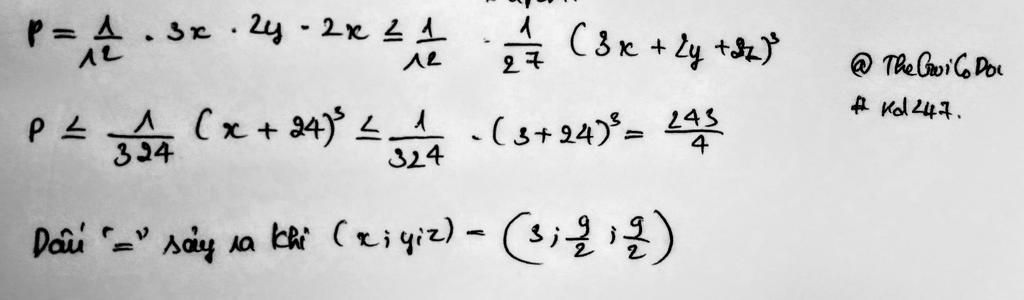 P = 1/12 · 3x · 2y · 2x ≤ 1/12 · 1/27 (3x + 2y + 2z)³
@ TheGwiCoDou
# Kol247.
P ≤ 1/324 (x + 24)³ ≤ 1/324 · (3 + 24)³ = 243/4
Dấu "=" sảy ra khi (x; y; z) = (3; 9/2; 9/2)